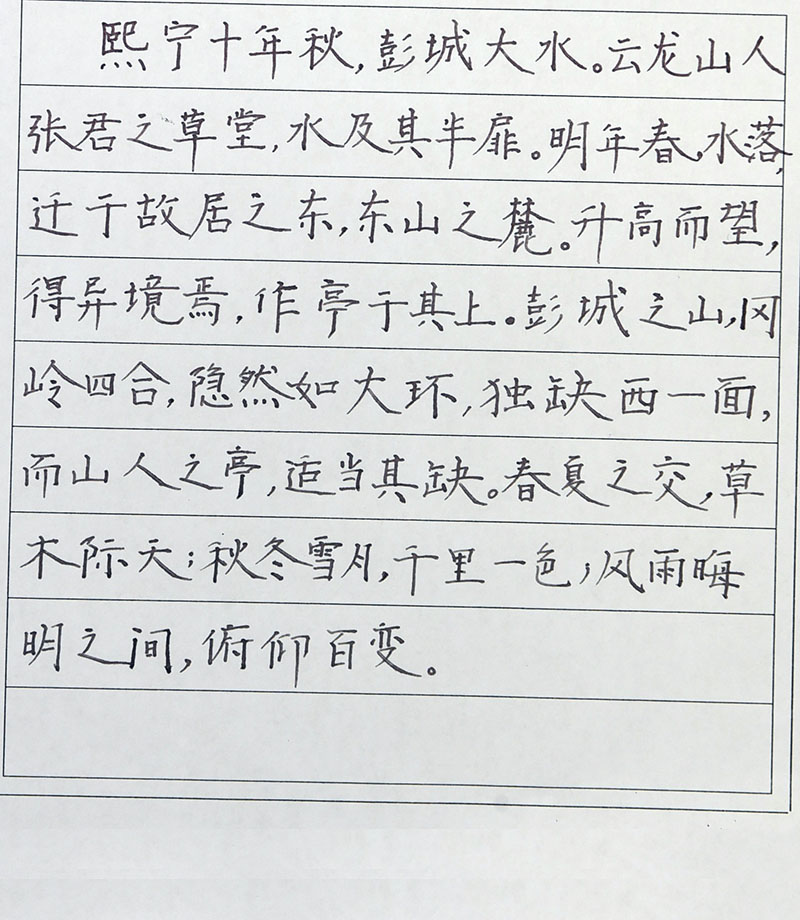 熙宁十年秋，彭城大水。云龙山人
张君之草堂，水及其半扉。明年春，水落，
迁于故居之东，东山之麓。升高而望，
得异境焉，作亭于其上。彭城之山，冈
岭四合，隐然如大环，独缺西一面，
而山人之亭，适当其缺。春夏之交，草
木际天；秋冬雪月，千里一色；风雨晦
明之间，俯仰百变。